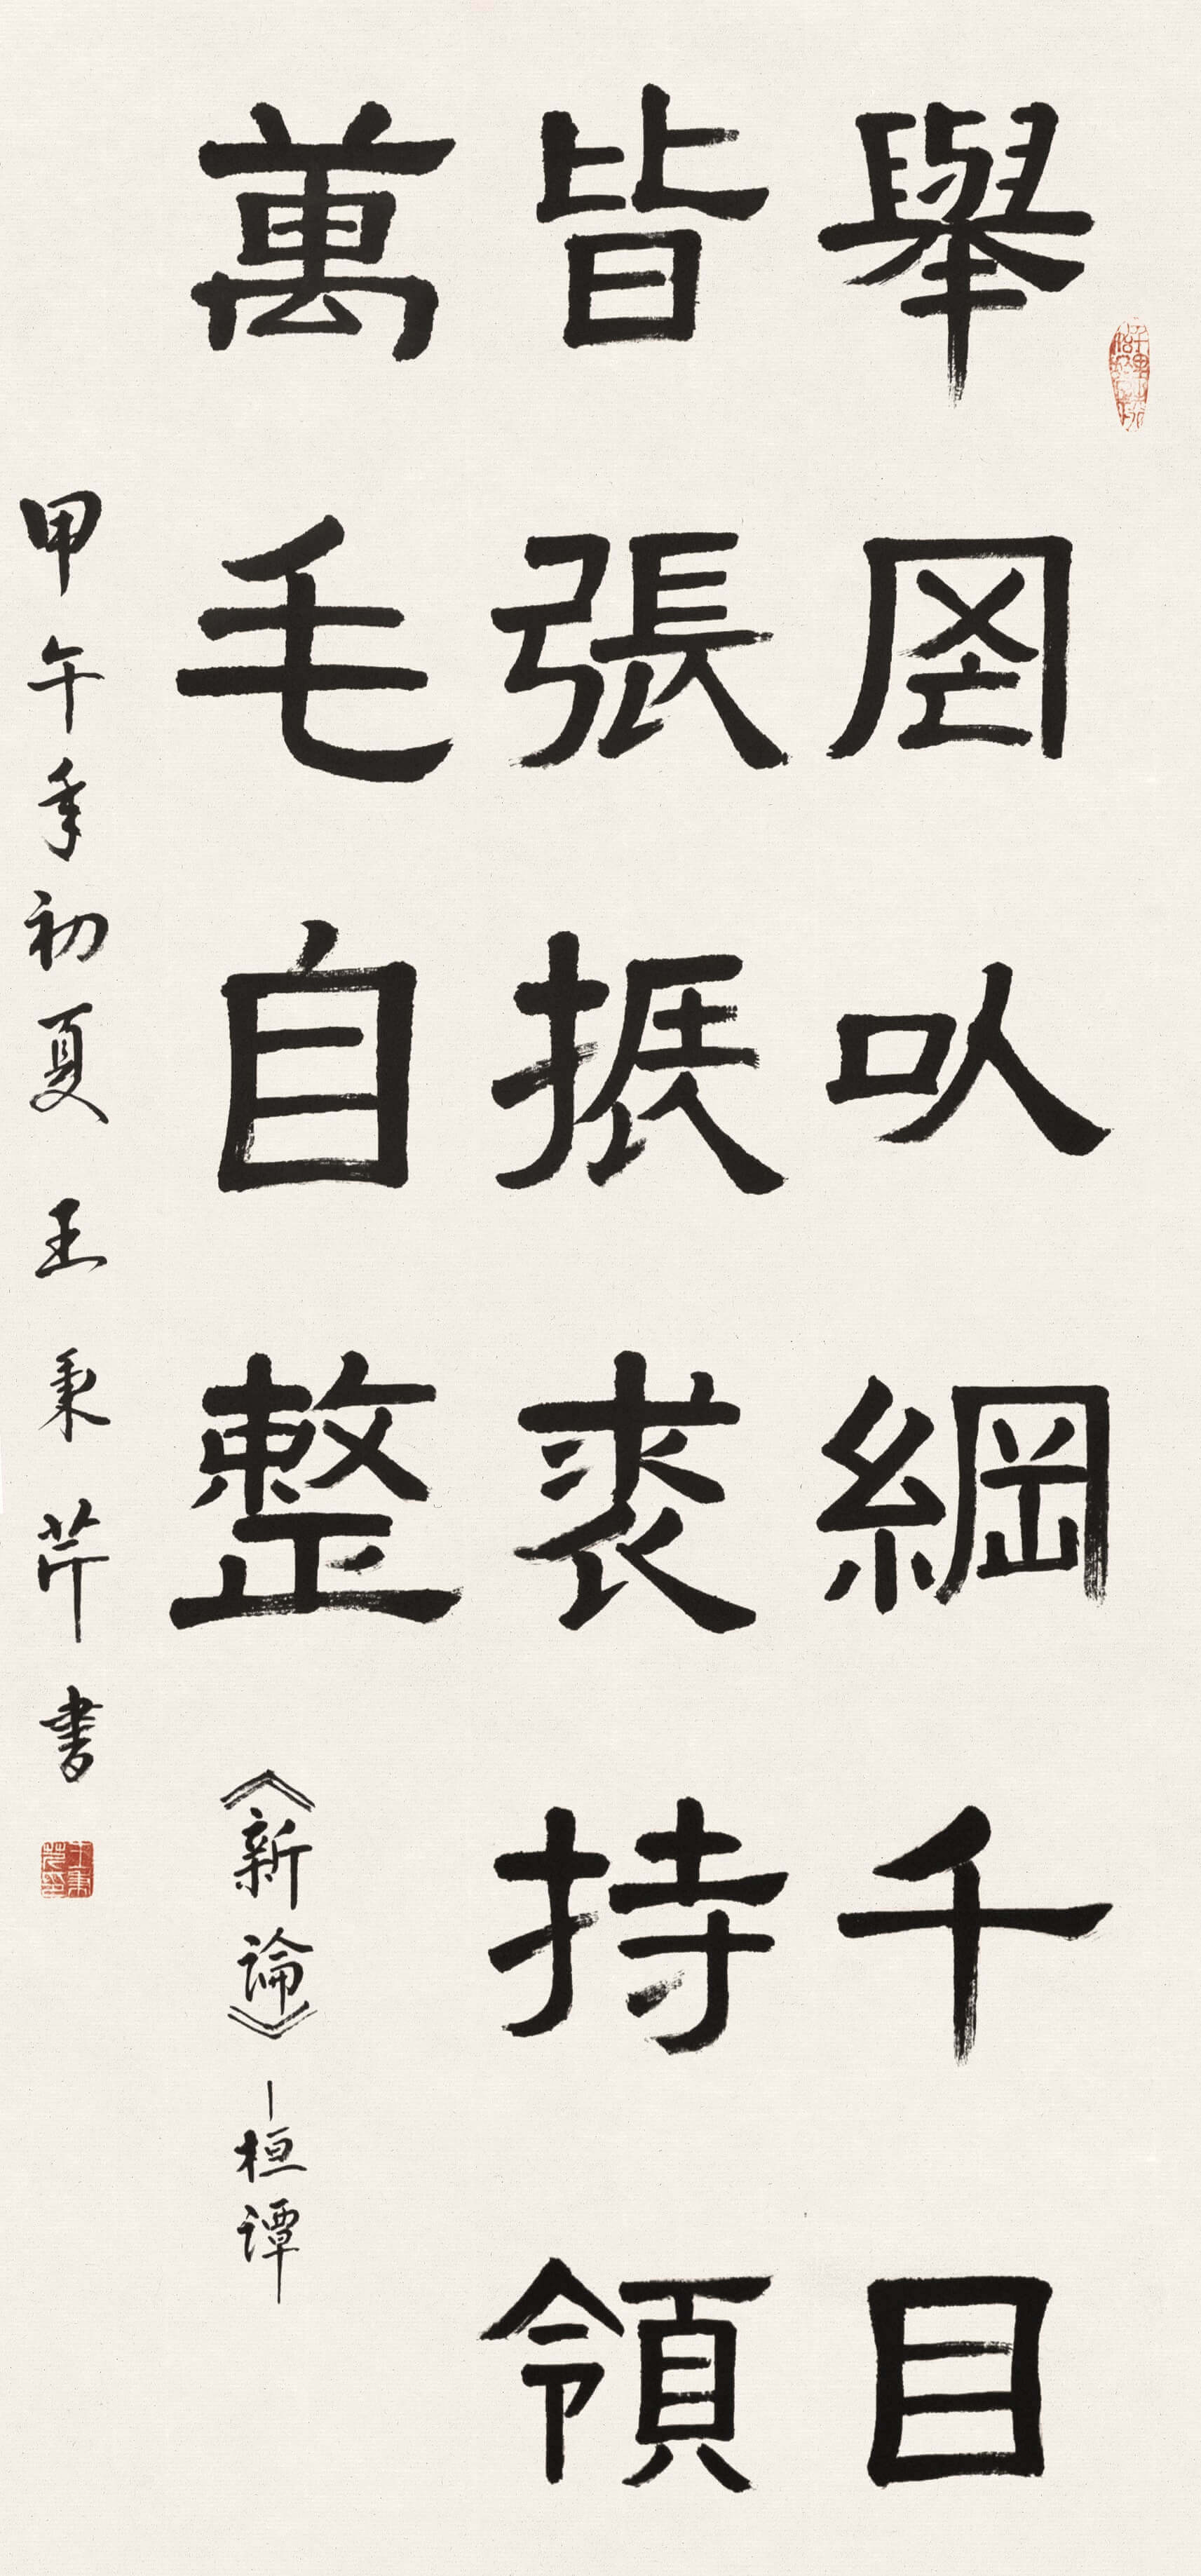 舉网以綱千目
皆張振裘持領
萬毛自整
《新論》—桓谭
甲午年初夏 王秉芹書